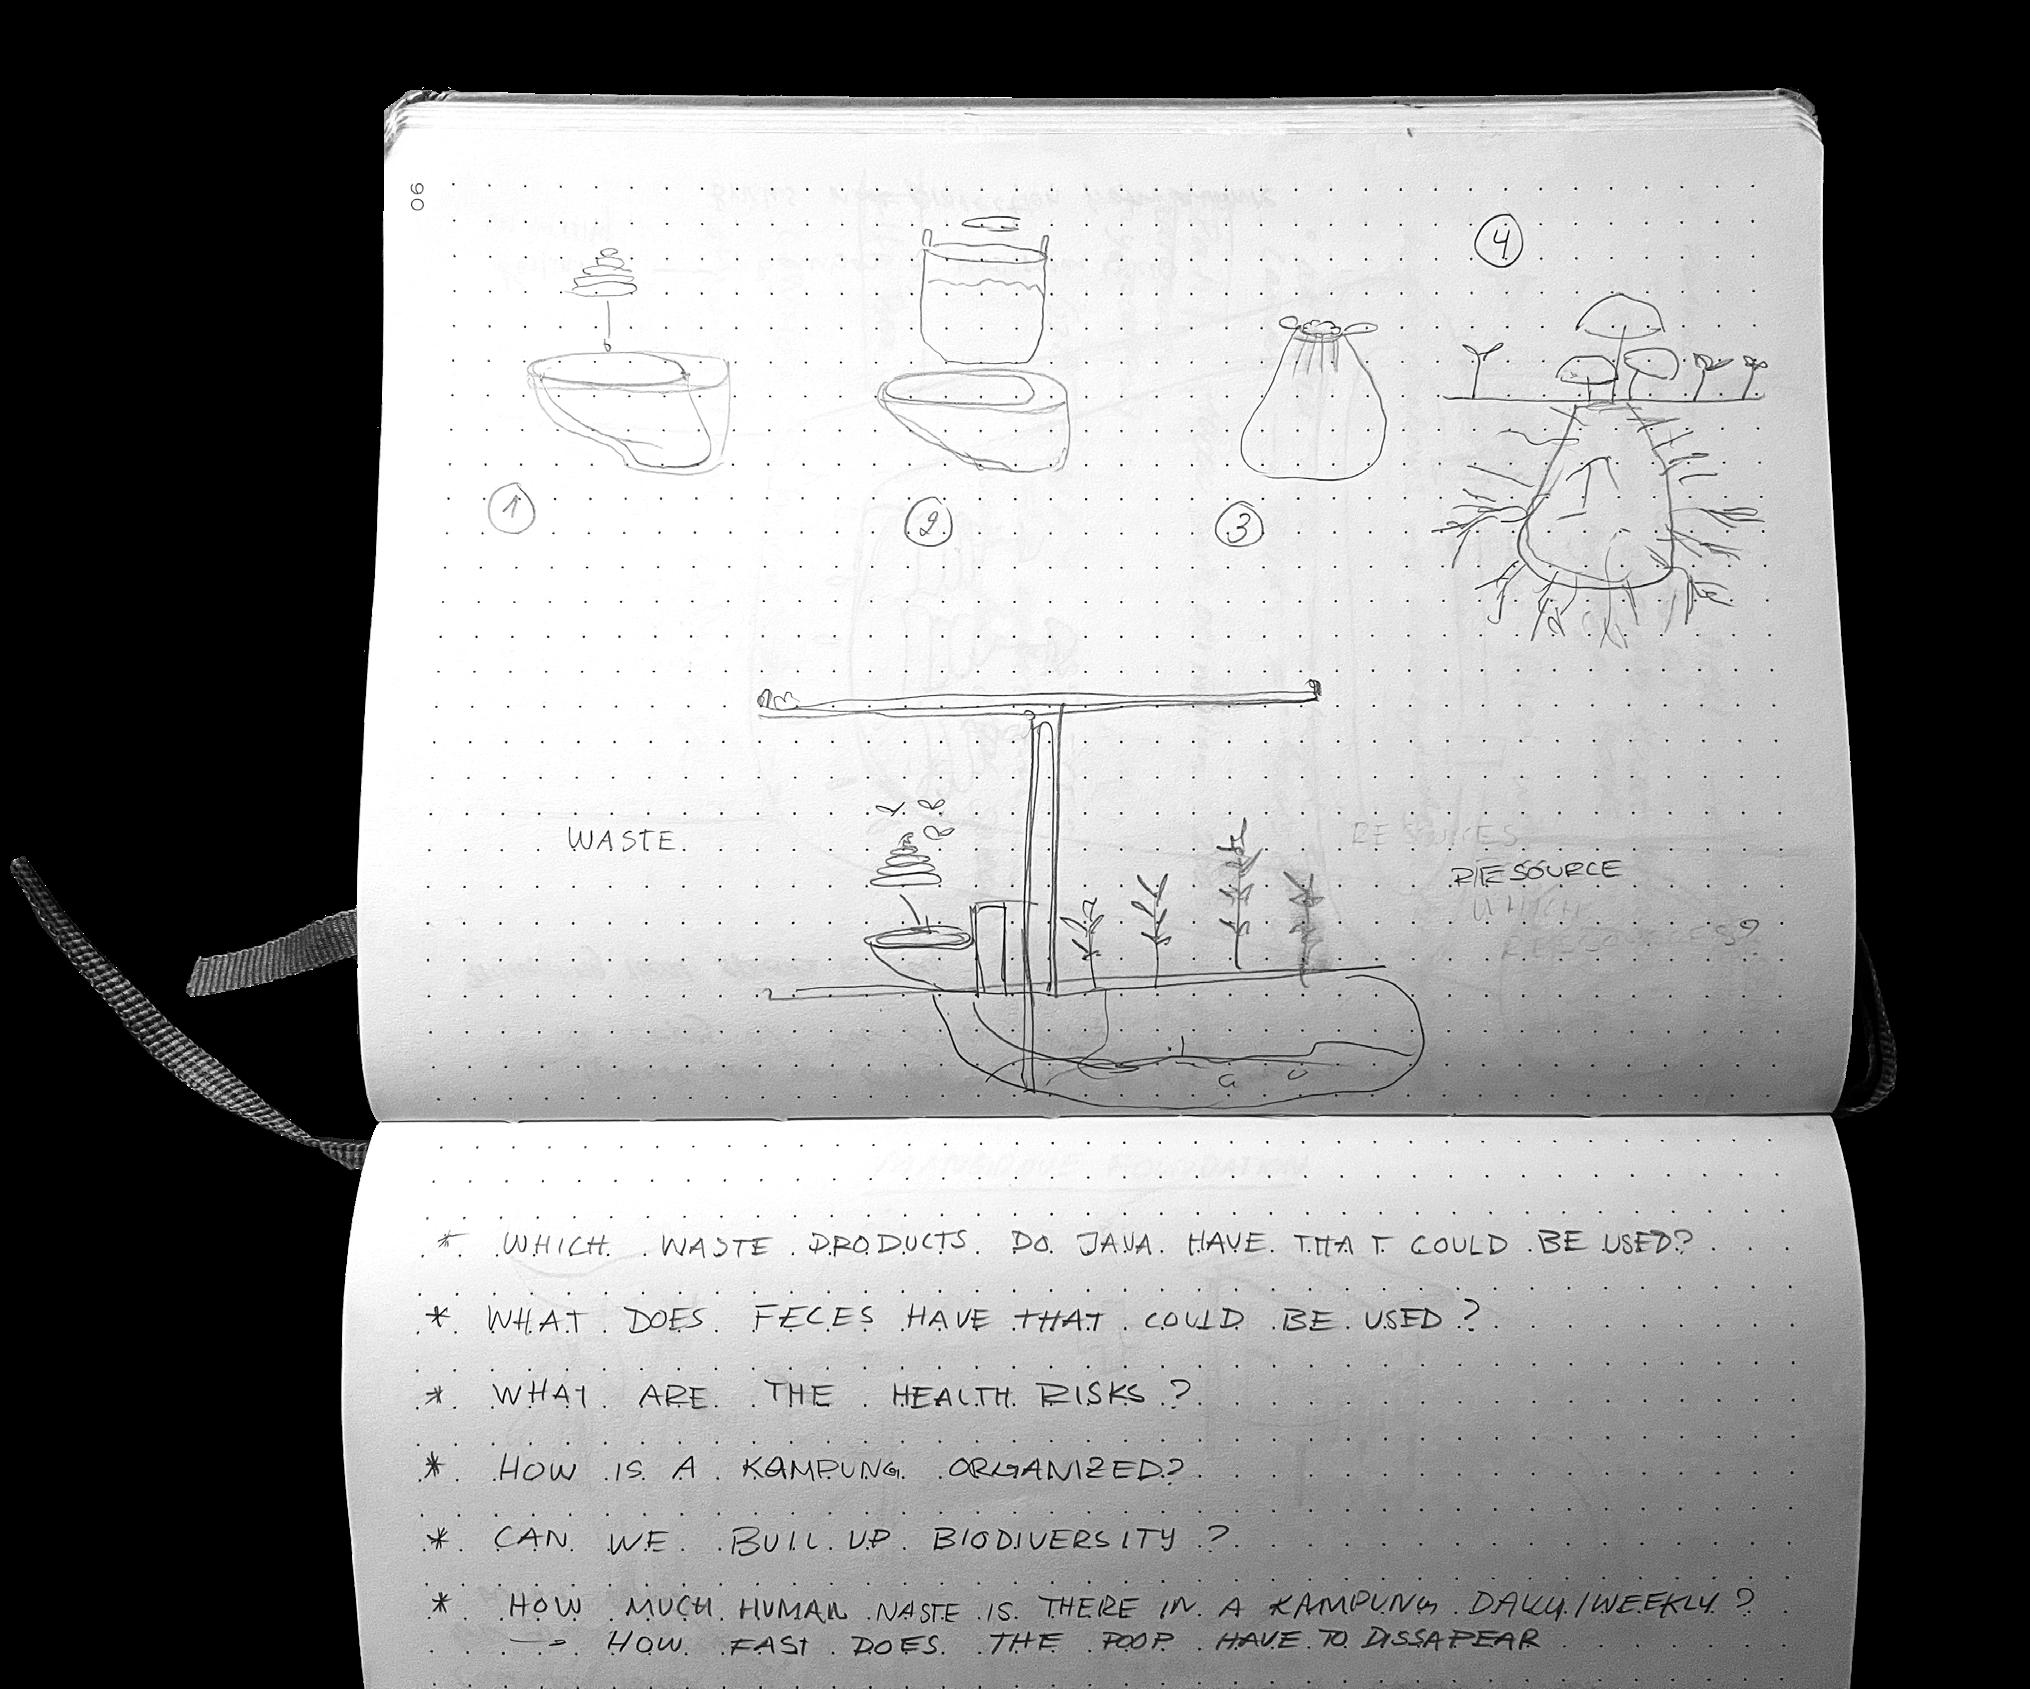 06
4
1
2
3
WASTE.
RESOURCES
RESOURCE
WHICH
RESOURCES?
MANGROVE FOUNDATION
* WHICH WASTE PRODUCTS DO JAVA HAVE THAT COULD BE USED?
* WHAT DOES FECES HAVE THAT COULD BE USED?
* WHAT ARE THE HEALTH RISKS?
* HOW IS A KAMPUNG ORGANIZED?
* CAN WE BUIL UP BIODIVERSITY?
* HOW MUCH HUMAN WASTE IS THERE IN A KAMPUNG DAILY/WEEKLY?
→ HOW FAST DOES THE POOP HAVE TO DISSAPEAR